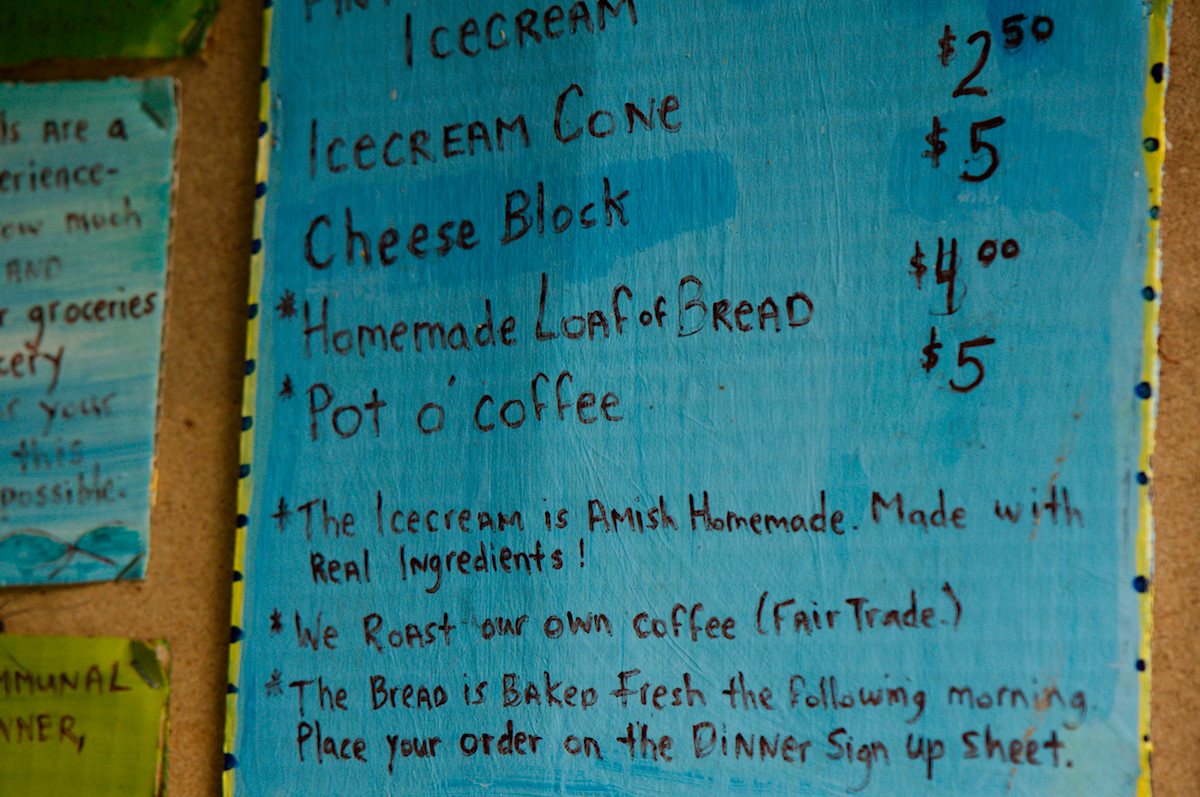 Icecream
Icecream Cone $2 50
Cheese Block $5
*Homemade Loaf of Bread $4 00
*Pot o' coffee $5
*The Icecream is Amish Homemade. Made with
Real Ingredients!
*We Roast our own coffee (Fair Trade.)
*The Bread is Baked Fresh the following morning.
Place your order on the Dinner Sign up sheet.
are a
much
AND
groceries
your
this
possible.